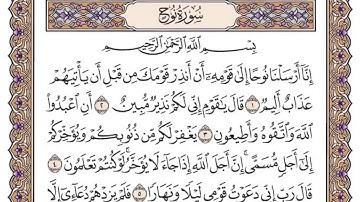 سُورَةُ نُوحٍ
بِسْمِ ٱللَّهِ ٱلرَّحْمَٰنِ ٱلرَّحِيمِ
إِنَّآ أَرْسَلْنَا نُوحًا إِلَىٰ قَوْمِهِۦٓ أَنْ أَنذِرْ قَوْمَكَ مِن قَبْلِ أَن يَأْتِيَهُمْ
عَذَابٌ أَلِيمٌ ١ قَالَ يَٰقَوْمِ إِنِّى لَكُمْ نَذِيرٌ مُّبِينٌ ٢ أَنِ ٱعْبُدُوا۟
ٱللَّهَ وَٱتَّقُوهُ وَأَطِيعُونِ ٣ يَغْفِرْ لَكُم مِّن ذُنُوبِكُمْ وَيُؤَخِّرْكُمْ
إِلَىٰٓ أَجَلٍ مُّسَمًّى إِنَّ أَجَلَ ٱللَّهِ إِذَا جَآءَ لَا يُؤَخَّرُ لَوْ كُنتُمْ تَعْلَمُونَ ٤
قَالَ رَبِّ إِنِّى دَعَوْتُ قَوْمِى لَيْلًا وَنَهَارًا ٥ فَلَمْ يَزِدْهُمْ دُعَآءِىٓ إِلَّا